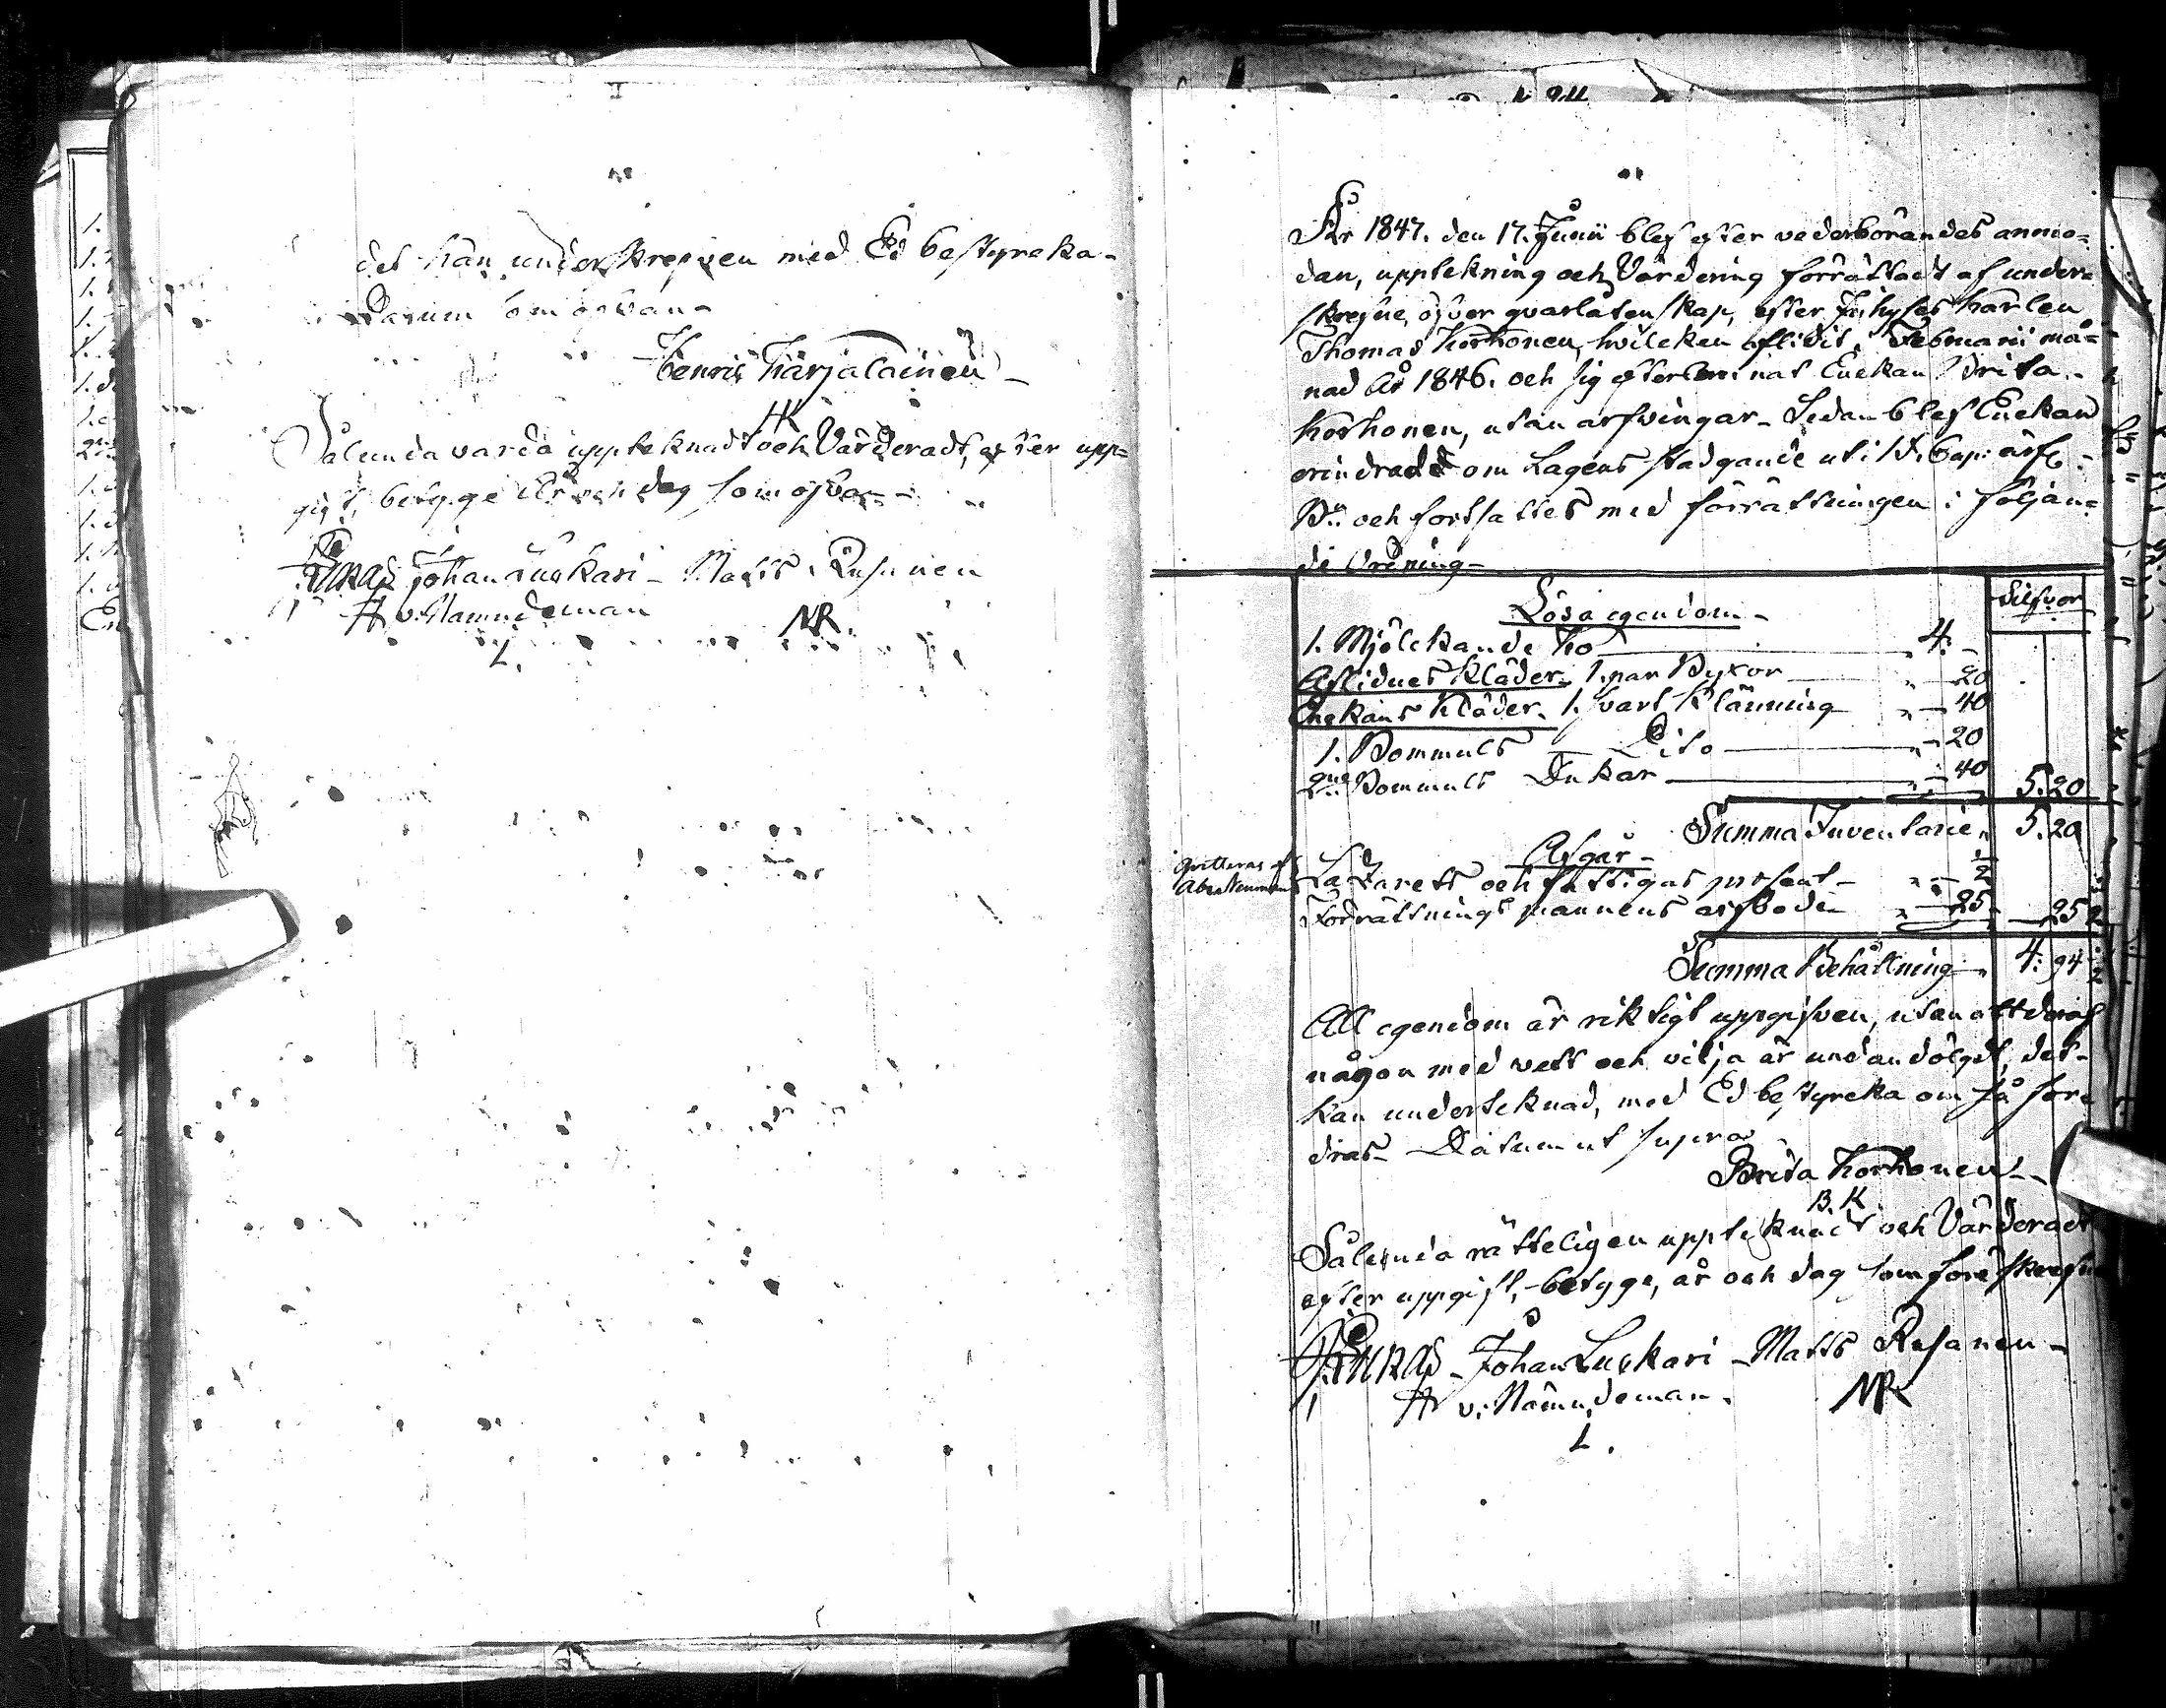 det kan underskrefven med Ed bestyrcka-
Datum som ofvan-
Henric Kärjälainen-
HK
Sålunda varda uppteknadt och Värderadt, efter upp=
gift, betyge År och dag som ofvan-
Johan Luskari- Matts Rusanen
v: Nämndeman
NR.
L.
År 1847. den 17. Junii blef efter vederbörandes anmo=
dan, upptekning och Värdering förrättadt af under=
skrefne, öfver qvarlåtenskap, efter Inhyses karlen
Thomas Korhonen, hvilcken aflidit i Februarii må=
nad År 1846. och sig efterlemnat Enckan Brita
Korhonen, utan arfvingar- Sedan blef Enckan
erindradt om Lagens stadgande uti 19. Cap: ärfd.
Bn: och fortsattes med förrättningen i följan=
de Ordning-
Silfver
Lösa egendom-
1. Mjölckande Ko 4. -
Aflidnes Kläder. 1. par Byxor - 20
Enckans Kläder. 1. svart Klänning - 40
1. Bommuls Dito - 20
2ne Bommuls Dukar - 40 5. 20
Summa Inventarie 5. 20
Afgår-
Qvitteras af
Abr. Nenmann
Lazarett och fattigas prosent - ½
Förrättnings mannens arfvode - 25 - 25 ½
Summa Behållning 4. 94 ½
All egendom är riktigt uppgifven, utan att deraf
någon med vett och vilja är undandölgdt, det-
kan underteknad, med Ed bestyrcka om så for-
dras- Datum ut supra
Brita Korhonen-
B. K
Sålunda rätteligen uppteknadt och Värderadt
efter uppgift, betyge, år och dag som föreskrefvit
Johan Luskari- Matts Rusanen-
v: Nämndeman. NR
L.